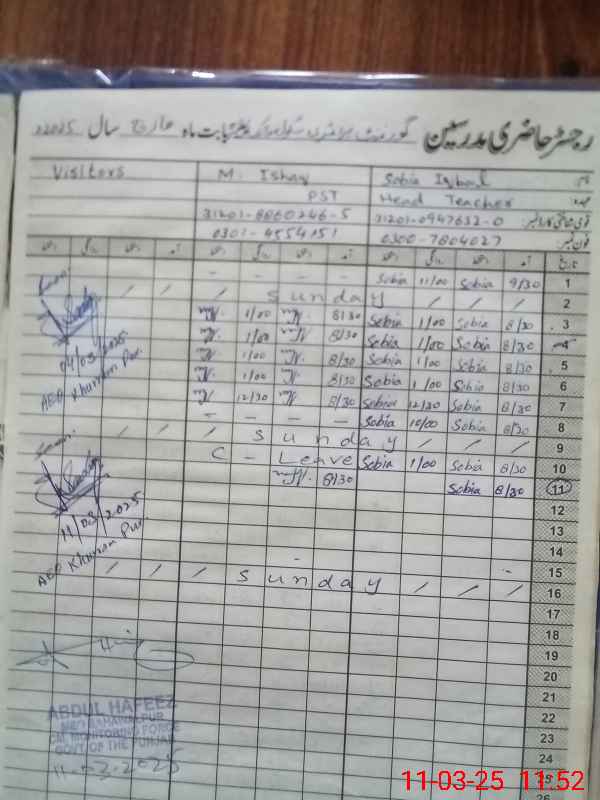 رجسٹر حاضری مدرسین گورنمنٹ پرائمری سکول بابت ماہ مارچ سال 2025
Visitors M. Ishaq Sobia Iqbal نام
PST Head Teacher عہدہ
31201-8860246-5 31201-0947632-0 قومی شناختی کارڈ نمبر
0301-4554151 0300-7804027 فون نمبر
تاریخ
- - - - Sobia 11/00 Sobia 9/30 1
/ / / Sunday / / / 2
1/00 8/30 Sobia 1/00 Sobia 8/30 3
1/00 8/30 Sobia 1/00 Sobia 8/30 4
1/00 8/30 Sobia 1/00 Sobia 8/30 5
04/03/2025
1/00 8/30 Sobia 1/00 Sobia 8/30 6
AEO Khurram Pur.
12/30 8/30 Sobia 12/30 Sobia 8/30 7
- - - - Sobia 10/00 Sobia 8/30 8
/ / / / Sunday / / / 9
C - Leave Sobia 1/00 Sobia 8/30 10
8/30 Sobia 8/30 11
11/03/2025
12
AEO Khurram Pur
13
14
- - 15
/ / / Sunday / / / 16
17
18
19
20
ABDUL HAFEEZ
21
22
MONITORING FORCE
GOVT OF THE PUNJAB
23
11-03-2025
24
25
26
11-03-25 11:52